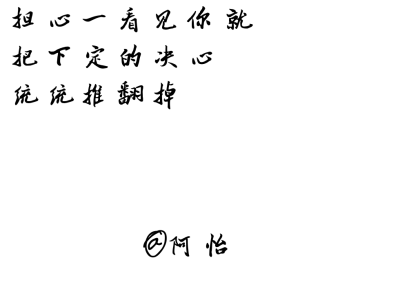 担心一看见你就
把下定的决心
统统推翻掉
@阿怡